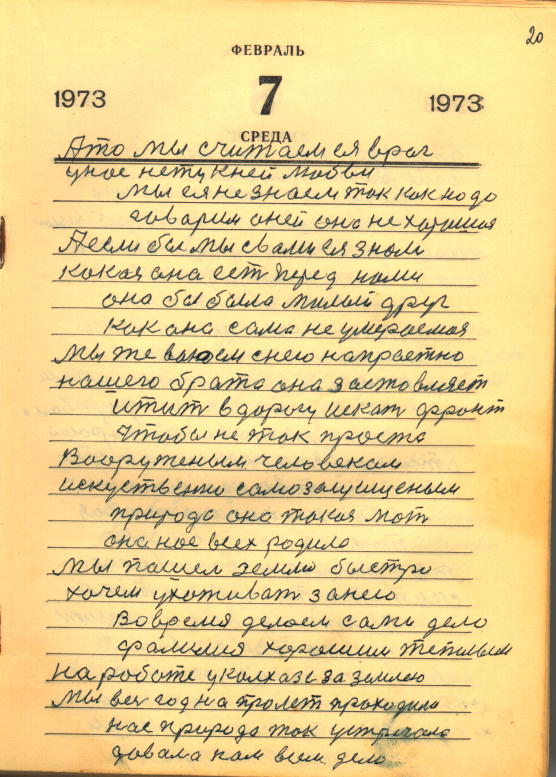 20
ФЕВРАЛЬ
1973 7 1973
СРЕДА
Ато мы считаемся враг
унас нету кней любви
мы ея не знаем так как надо
говарим оней она не хорошая
Аесли бы мы свами ея знали
какая она ест перед нами
она бы была милый друг
как она сама не умераемая
мы же воюем снею напрастно
нашего брата она заставляет
итит в дорогу искат фронт
чтобы не так проста
Вооруженым человекам
искуственно самозащищеным
природа она такая мат
она нас всех родила
мы пашем землю быстро
хочем ухаживат занею
Вовремя делаем сами дело
фамилия хорошим
на работе у колхазе за землею
мы вес год на пролет праходили
нас природа так устричала
давала нам всем дело